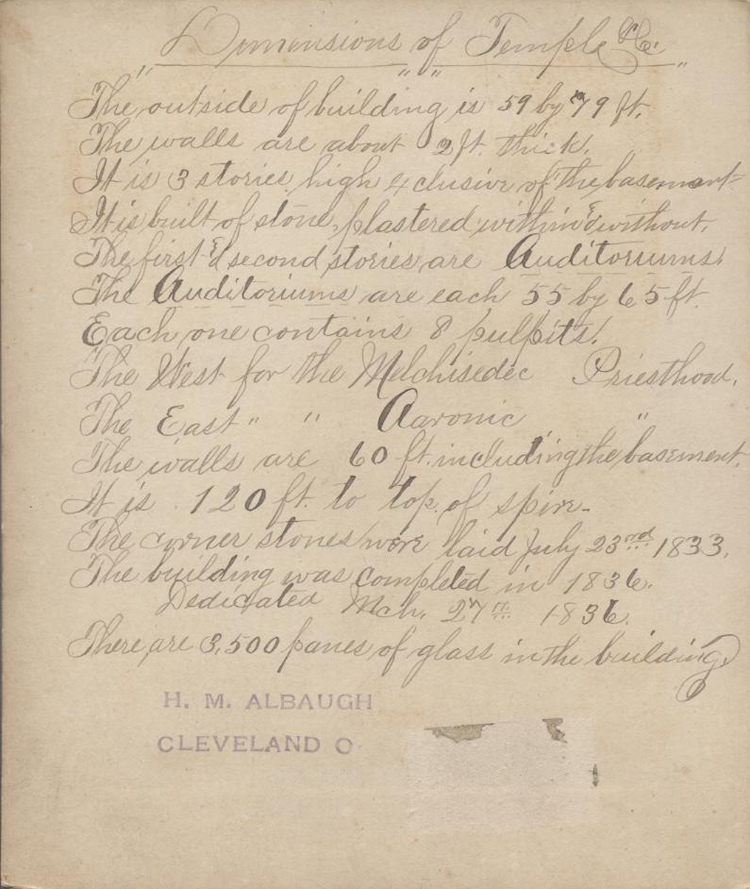 Dimensions of Temple &c.
The outside of building is 59 by 79 ft.
The walls are about 2 ft. thick.
It is 3 stories high exclusive of the basement
It is built of stone, plastered within & without.
The first & second stories are Auditoriums.
The Auditoriums are each 55 by 65 ft.
Each one contains 8 pulpits.
The West for the Melchisedec Priesthood.
The East " " Aaronic "
The walls are 60 ft. including the basement.
It is 120 ft. to top of spire.
The corner stones were laid July 23rd 1833.
The building was completed in 1836.
Dedicated Mch. 27th 1836.
There are 3,500 panes of glass in the building
H. M. ALBAUGH
CLEVELAND O